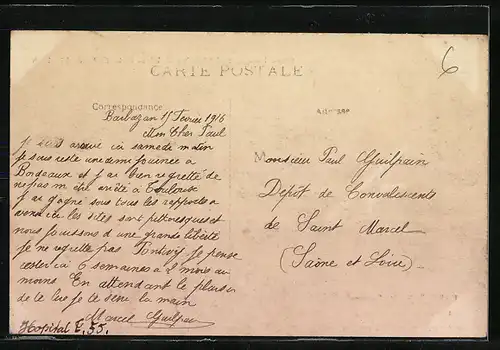 CARTE POSTALE
Correspondance
Adresse
Barbazan 15 Fevrier 1916
Mon Cher Paul
Je suis arrivé ici samedi matin
je suis resté une demi journée a
Bordeaux et j'ai bien regretté de
ne pas m'etre arrêté à Toulouse
j'ai gagné sous tous les rapports a
venir ici les sites sont pittoresques et
nous jouissons d'une grande liberté
je ne regrette pas Pontivy je pense
rester ici 6 semaines a 2 mois au
moins. En attendant le plaisir
de te lire je te serre la main
Marcel Guilpain
Hopital E.55.
Monsieur Paul Guilpain
Dépot de Convalescents
de Saint Marcel
(Saône et Loire)
6